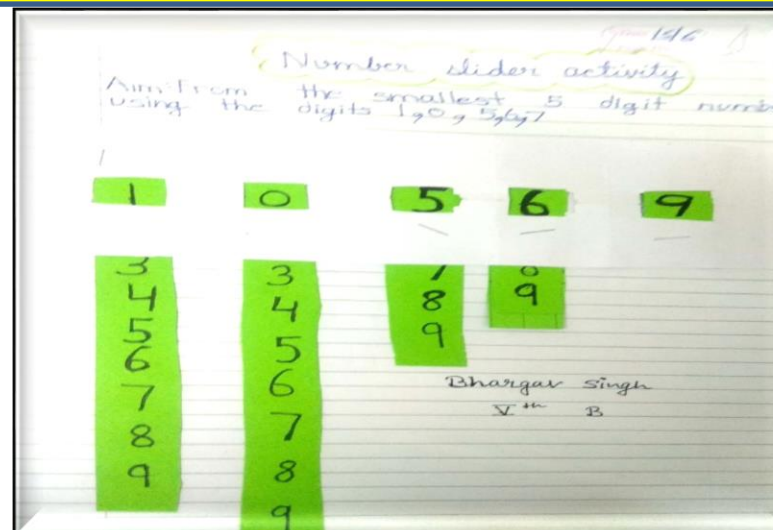 15/6
Number slider activity
Aim: From the smallest 5 digit
using the digits 1, 0, 5, 6, 7
1 0 5 6 9
3 3 8 9
4 4 9
5 5
6 6
7 7
8 8
9 9
Bhargav Singh
Vth B